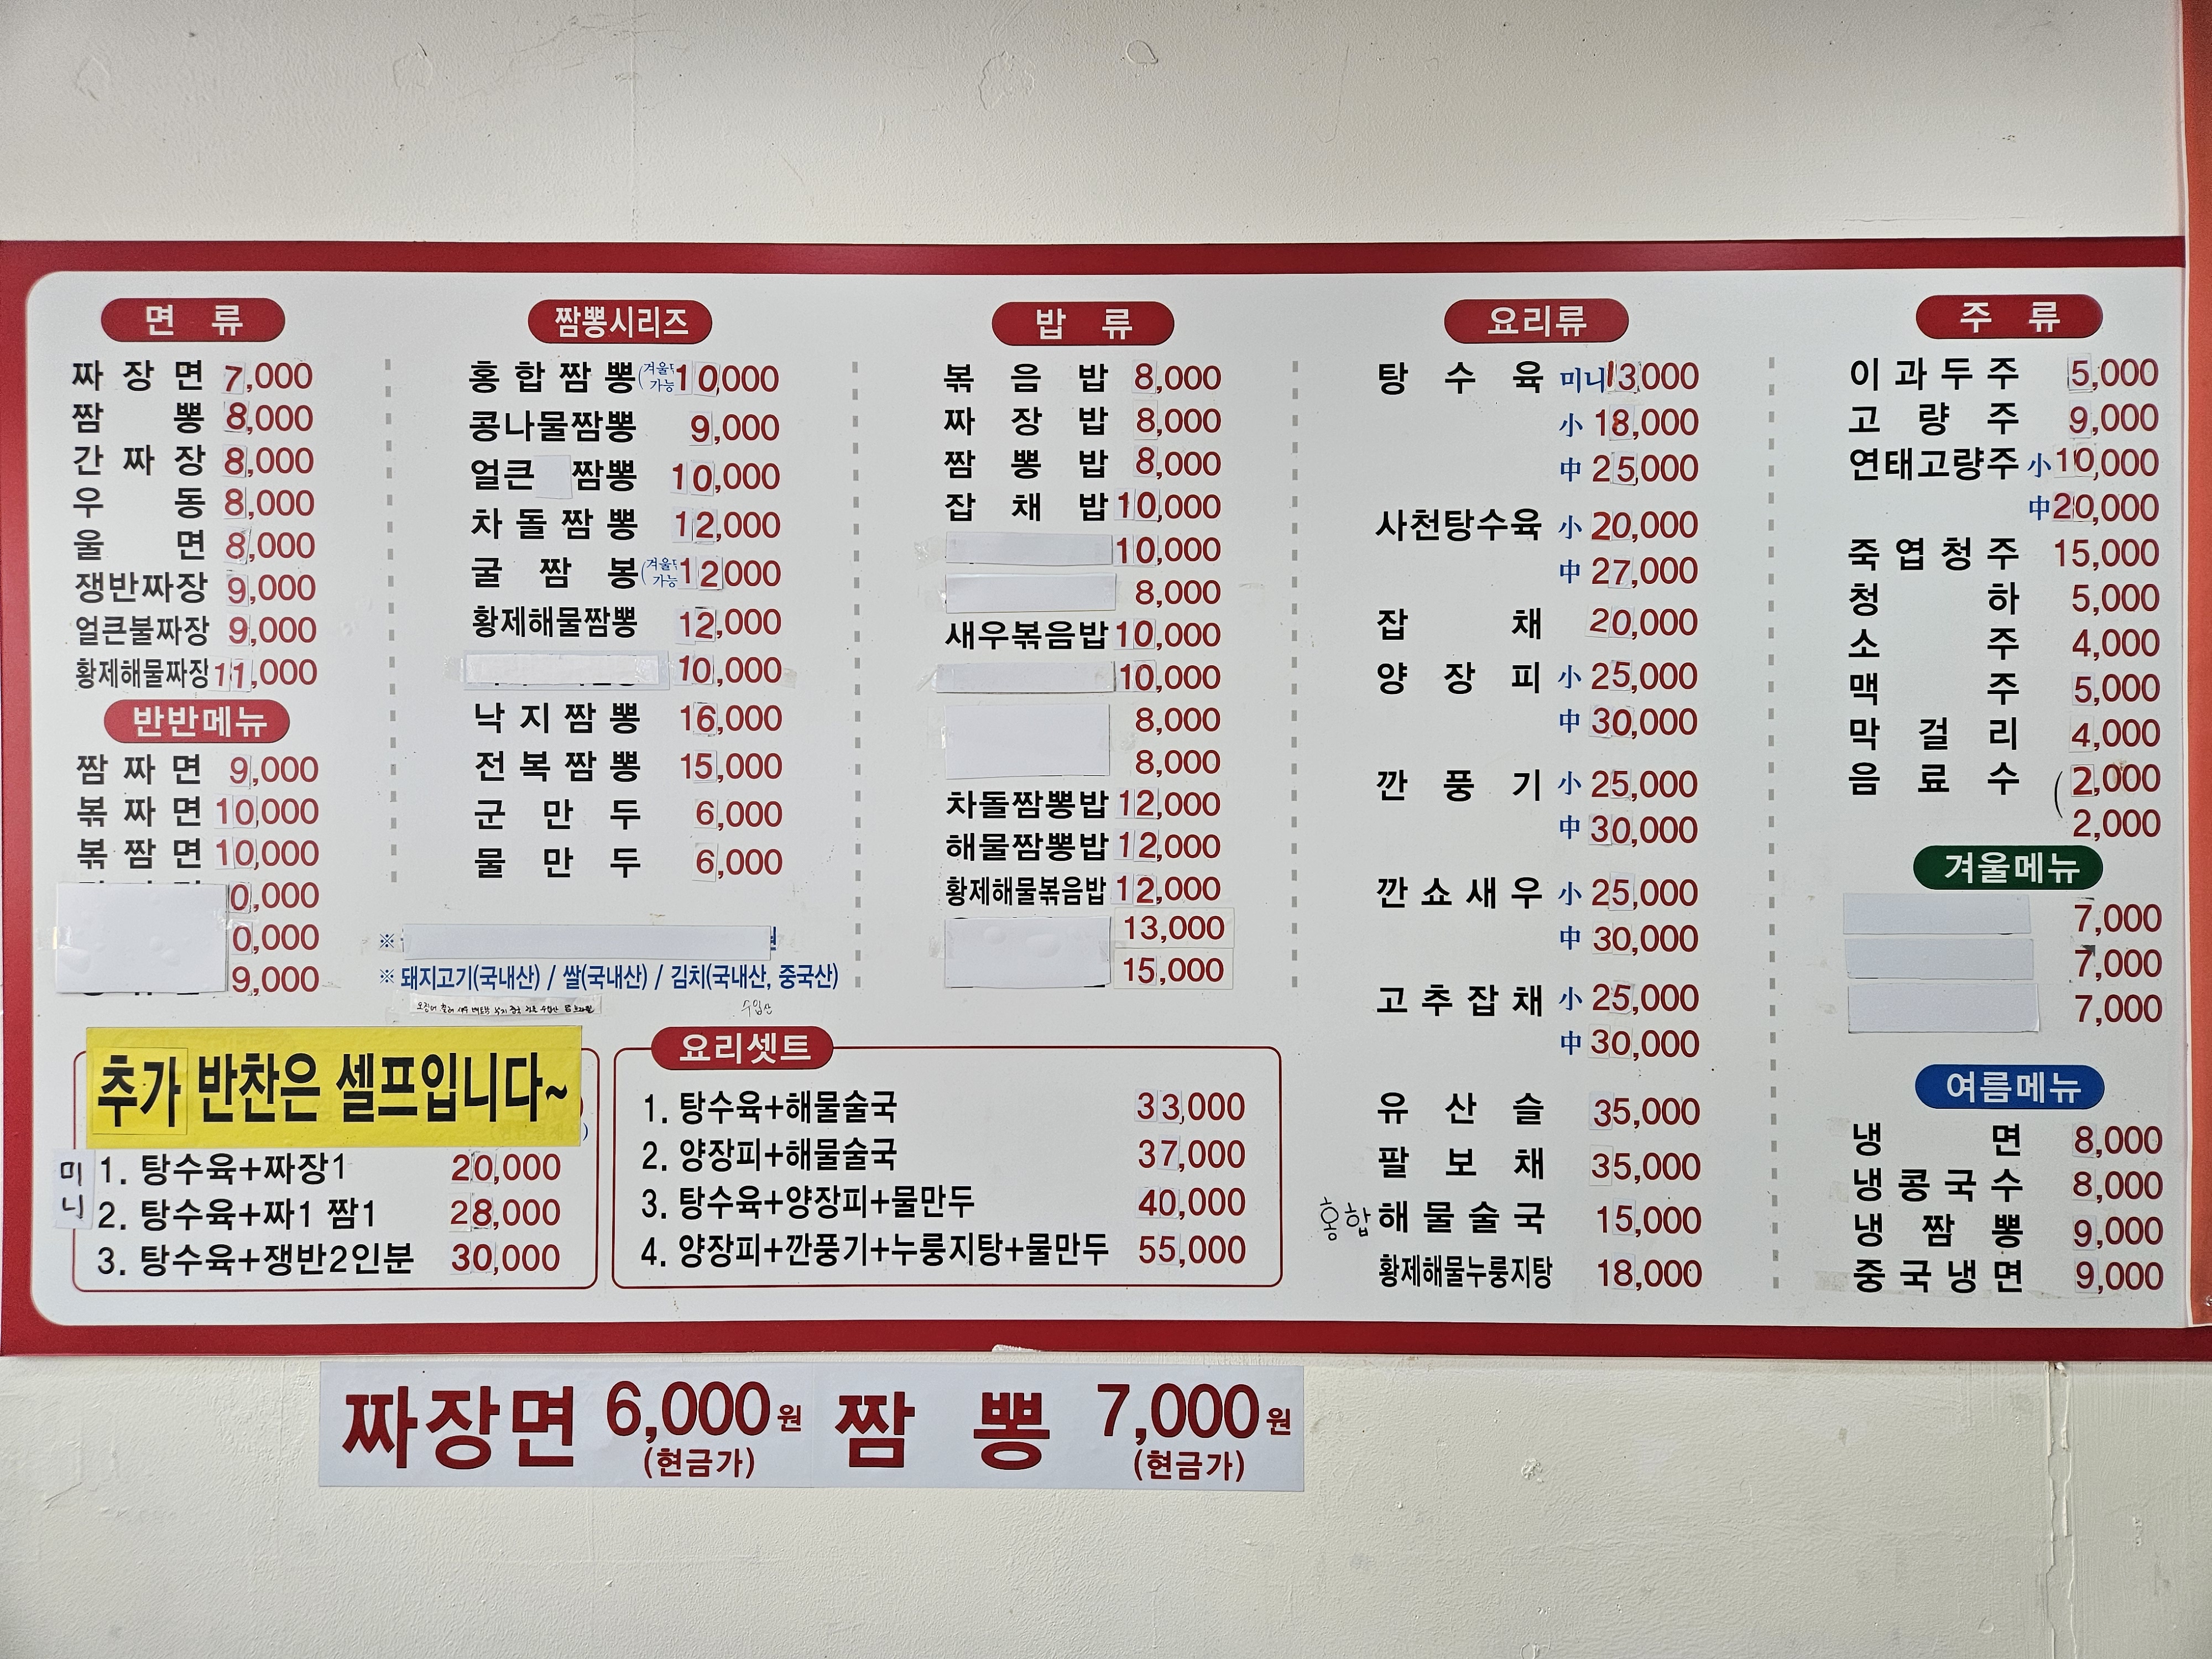 면 류
짜 장 면 7,000
짬 뽕 8,000
간 짜 장 8,000
우 동 8,000
울 면 8,000
쟁반짜장 9,000
얼큰불짜장 9,000
황제해물짜장 11,000
반반메뉴
짬 짜 면 9,000
볶 짜 면 10,000
볶 짬 면 10,000
0,000
0,000
9,000
짬뽕시리즈
홍 합 짬 뽕 (겨울 가능 10,000
콩나물짬뽕 9,000
얼큰 짬뽕 10,000
차 돌 짬 뽕 12,000
굴 짬 봉 (겨울 가능 12000
황제해물짬뽕 12,000
10,000
낙 지 짬 뽕 16,000
전 복 짬 뽕 15,000
군 만 두 6,000
물 만 두 6,000
※
※ 돼지고기(국내산) / 쌀(국내산) / 김치(국내산, 중국산)
수입산
밥 류
볶 음 밥 8,000
짜 장 밥 8,000
짬 뽕 밥 8,000
잡 채 밥 10,000
10,000
8,000
새우볶음밥 10,000
10,000
8,000
8,000
차돌짬뽕밥 12,000
해물짬뽕밥 12,000
황제해물볶음밥 12,000
13,000
15,000
요리류
탕 수 육 미니 13,000
小 18,000
中 25,000
사천탕수육 小 20,000
中 27,000
잡 채 20,000
양 장 피 小 25,000
中 30,000
깐 풍 기 小 25,000
中 30,000
깐 쇼 새 우 小 25,000
中 30,000
고 추 잡 채 小 25,000
中 30,000
유 산 슬 35,000
팔 보 채 35,000
홍합 해 물 술 국 15,000
황제해물누룽지탕 18,000
주 류
이 과 두 주 5,000
고 량 주 9,000
연태고량주 小 10,000
中 20,000
죽 엽 청 주 15,000
청 하 5,000
소 주 4,000
맥 주 5,000
막 걸 리 4,000
음 료 수 ( 2,000
2,000
겨울메뉴
7,000
7,000
7,000
여름메뉴
냉 면 8,000
냉 콩 국 수 8,000
냉 짬 뽕 9,000
중 국 냉 면 9,000
추가 반찬은 셀프입니다~
미니
1. 탕수육+짜장1 20,000
2. 탕수육+짜1 짬1 28,000
3. 탕수육+쟁반2인분 30,000
요리셋트
1. 탕수육+해물술국 33,000
2. 양장피+해물술국 37,000
3. 탕수육+양장피+물만두 40,000
4. 양장피+깐풍기+누룽지탕+물만두 55,000
짜장면 6,000원 (현금가) 짬 뽕 7,000원 (현금가)